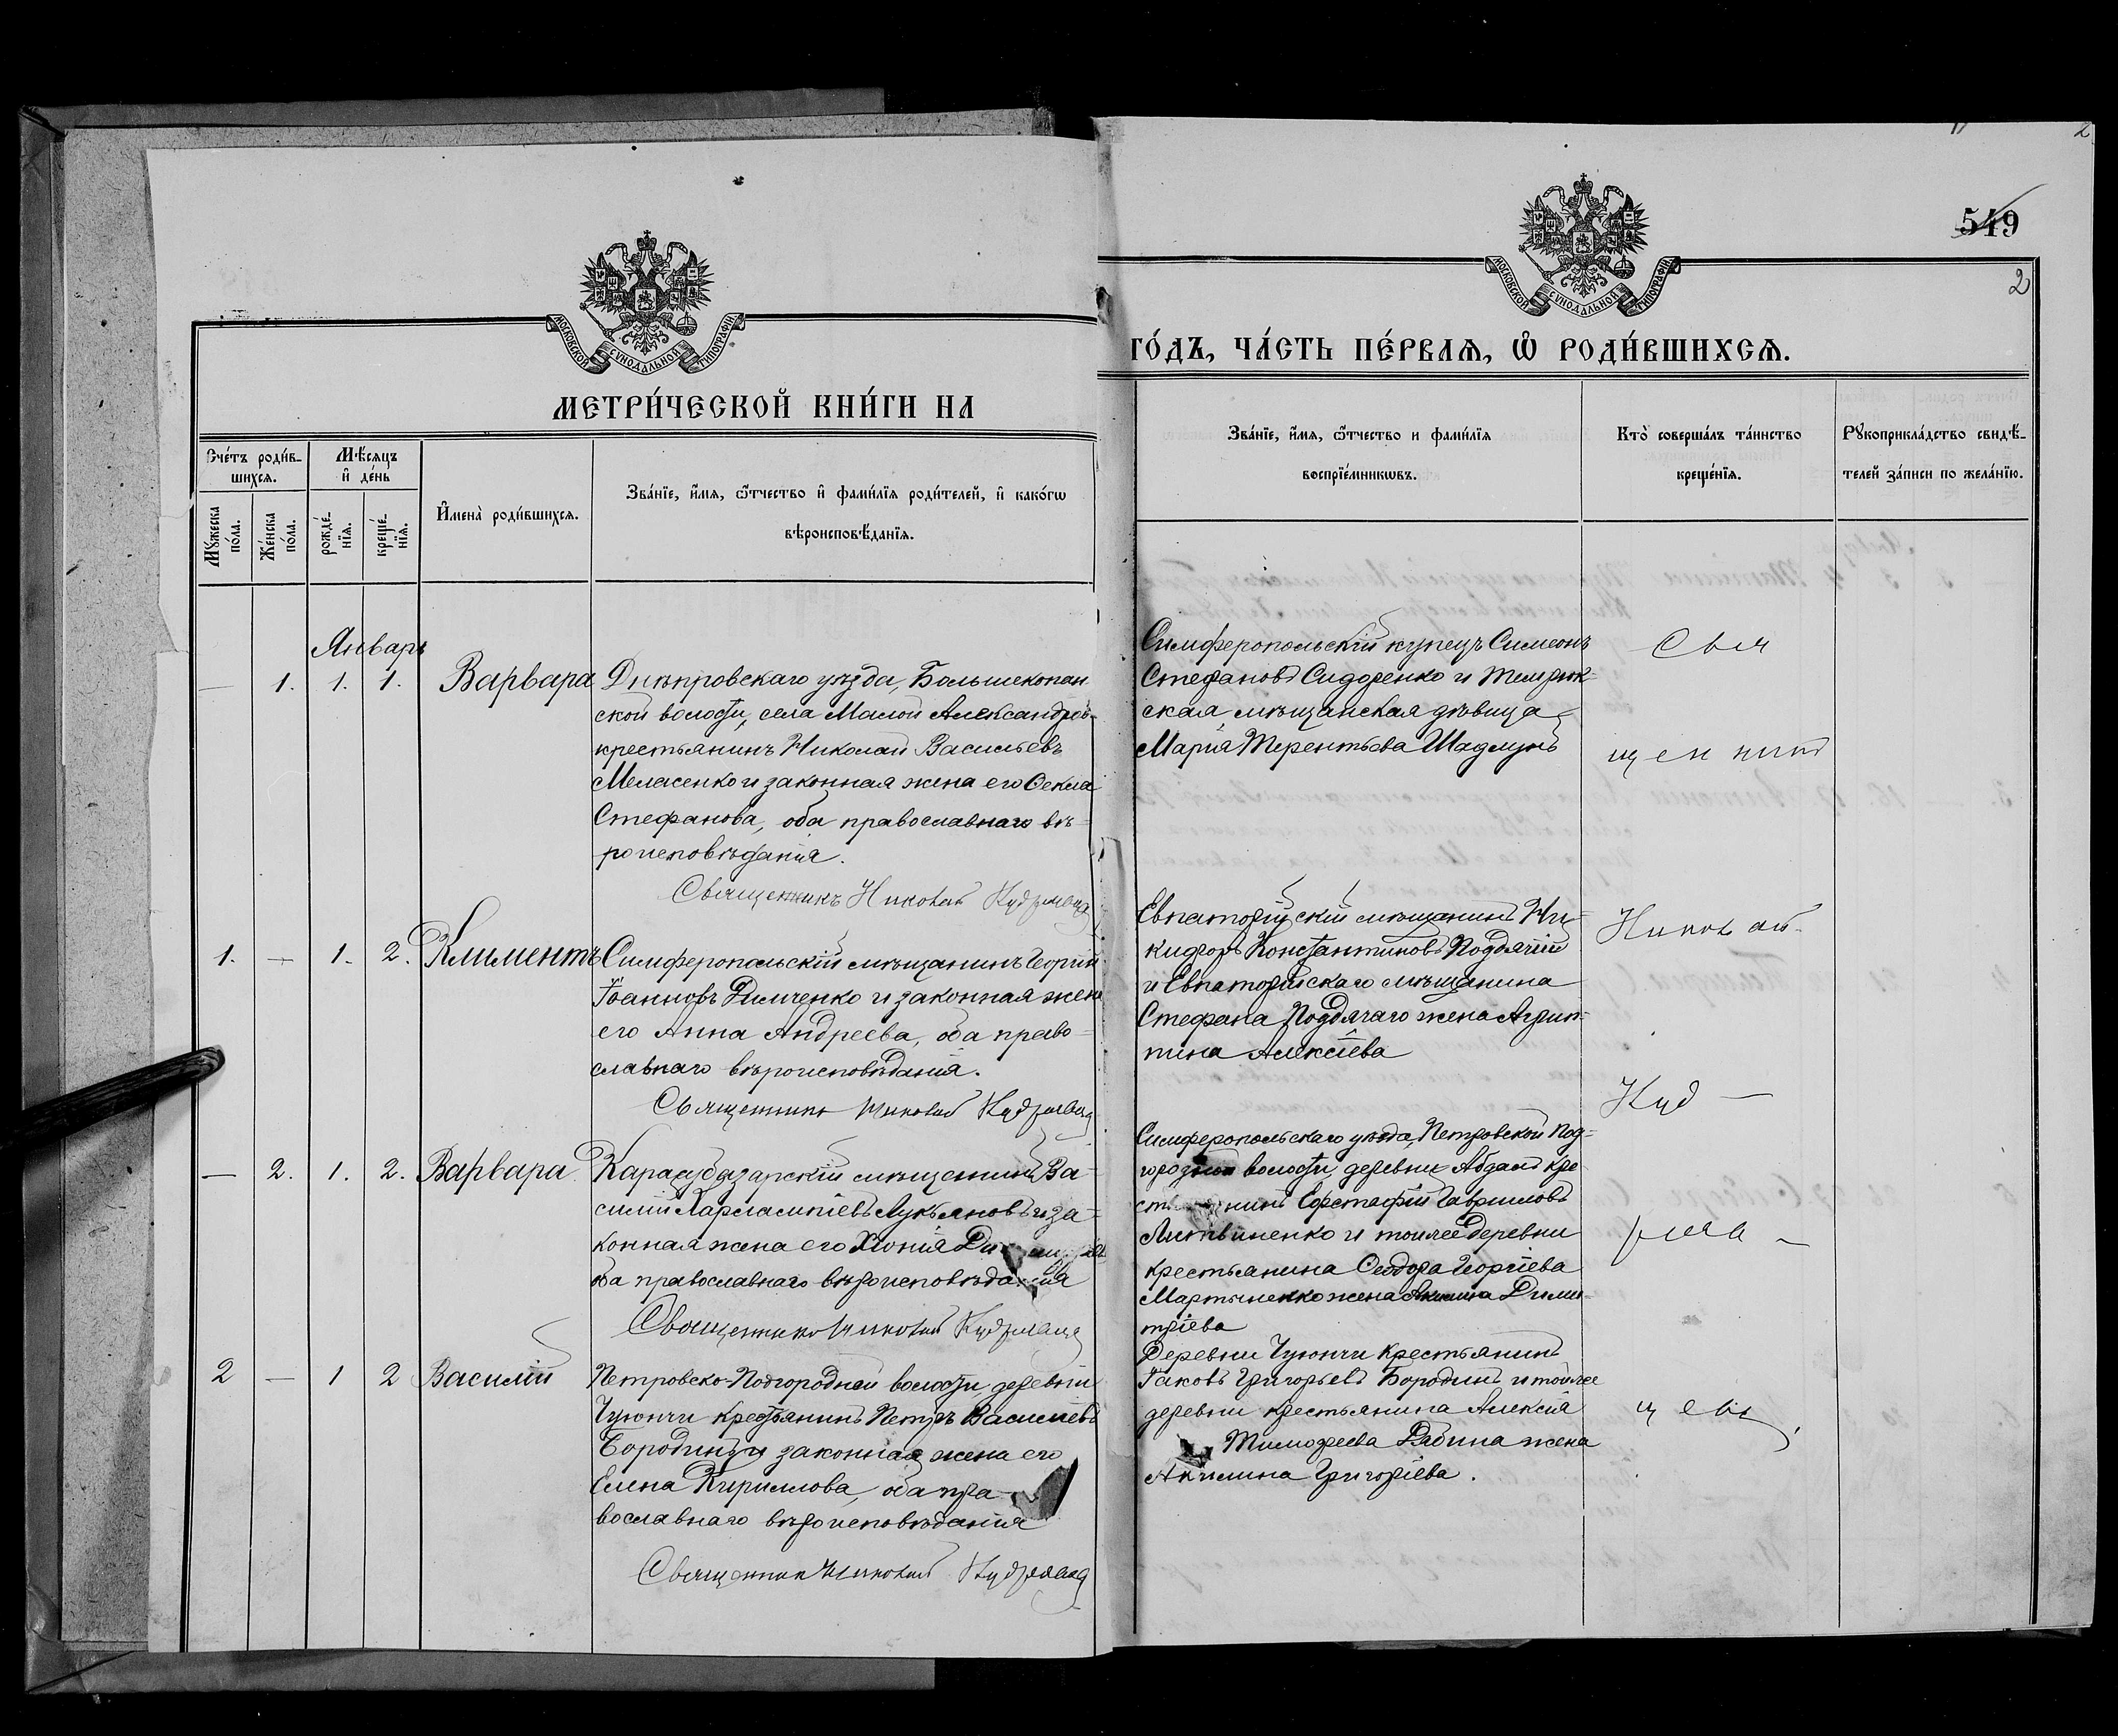 549
2
2
МОСКОВСКОЙ СѴНОДАЛЬНОЙ ТИПОГРАФІИ
МОСКОВСКОЙ СѴНОДАЛЬНОЙ ТИПОГРАФІИ
МЕТРИ́ЧЕСКОЙ КНИ́ГИ НА
ГО́ДЪ, ЧА́СТЬ ПЕ́РВАѦ, Ѡ҆ РОДИ́ВШИХСѦ.
Сче́тъ роди́в-
шихсѧ.
Мꙋ́жеска
по́ла.
Же́нска
по́ла.
Мѣ́сѧцъ
и҆ де́нь
рожде́-
нїѧ.
креще́-
нїѧ.
И҆мена̀ роди́вшихсѧ.
Зва́нїе, и҆́мѧ, ѻ҆́тчество и҆ фами́лїѧ роди́телей, и҆ како́гѡ
вѣроисповѣ́данїѧ.
Зва́нїе, и҆́мѧ, ѻ҆́тчество и фами́лїѧ
воспрїе́мникѡвъ.
Кто̀ соверша́лъ та́инство
креще́нїѧ.
Рꙋкоприкла́дство свидѣ́-
телей за́писи по жела́нїю.
Январь
— 1. 1. 1. Варвара
Днѣпровскаго уѣзда, Большекопан
ской волости, села Малой Александров-
крестьянинъ Николай Васильевъ
Меласенко и законная жена его Ѳекла
Стефанова, оба православнаго вѣ-
роисповѣданія.
Священникъ Николай Кудрявцев
Симферопольскій купецъ Симеонъ
Стефановъ Сидоренко и Темрюк-
ская мѣщанская дѣвица
Марія Терентьева
1. — 1. 2. Климентъ
Симферопольскій мѣщанинъ Георгій
Іоанновъ Димченко и законная жена
его Анна Андреева, оба право-
славнаго вѣроисповѣданія.
Священникъ Николай Кудрявцев
Евпаторійскій мѣщанинъ Ни-
кифоръ Константиновъ Подьячій
и Евпаторійскаго мѣщанина
Стефана Подьячаго жена Агрип-
пина Алексіева
— 2. 1. 2. Варвара
Карасубазарскій мѣщанинъ Ва-
силій Харлампіевъ Лукьяновъ и за-
конная жена его Хіонія
ба православнаго вѣроисповѣданія
Священникъ Николай Кудрявцев
Симферопольскаго уѣзда, Петровской Под-
городной волости, деревни Абдалъ кре
Евстафій Гавриловъ
Литвиненко и тойже деревни
крестьянина Ѳеодора Георгіева
Мартыненко жена Акилина Дими-
тріева
2 — 1 2 Василій
Петровско-Подгородней волости, деревни
Чуюнчи крестьянинъ Петръ Василіевъ
Бородинъ и законная жена его
Елена Кириллова, оба пра-
вославнаго вѣроисповѣданія
Священник Николай Кудрявцев
Деревни Чуюнчи крестьянинъ
Іаковъ Григорьевъ Бородинъ и тойже
деревни крестьянина Алексія
Тимофеева Рябина жена
Акилина Григоріева.
Свя
щен никъ
Никол ай
Куд —
рява —
ц евъ